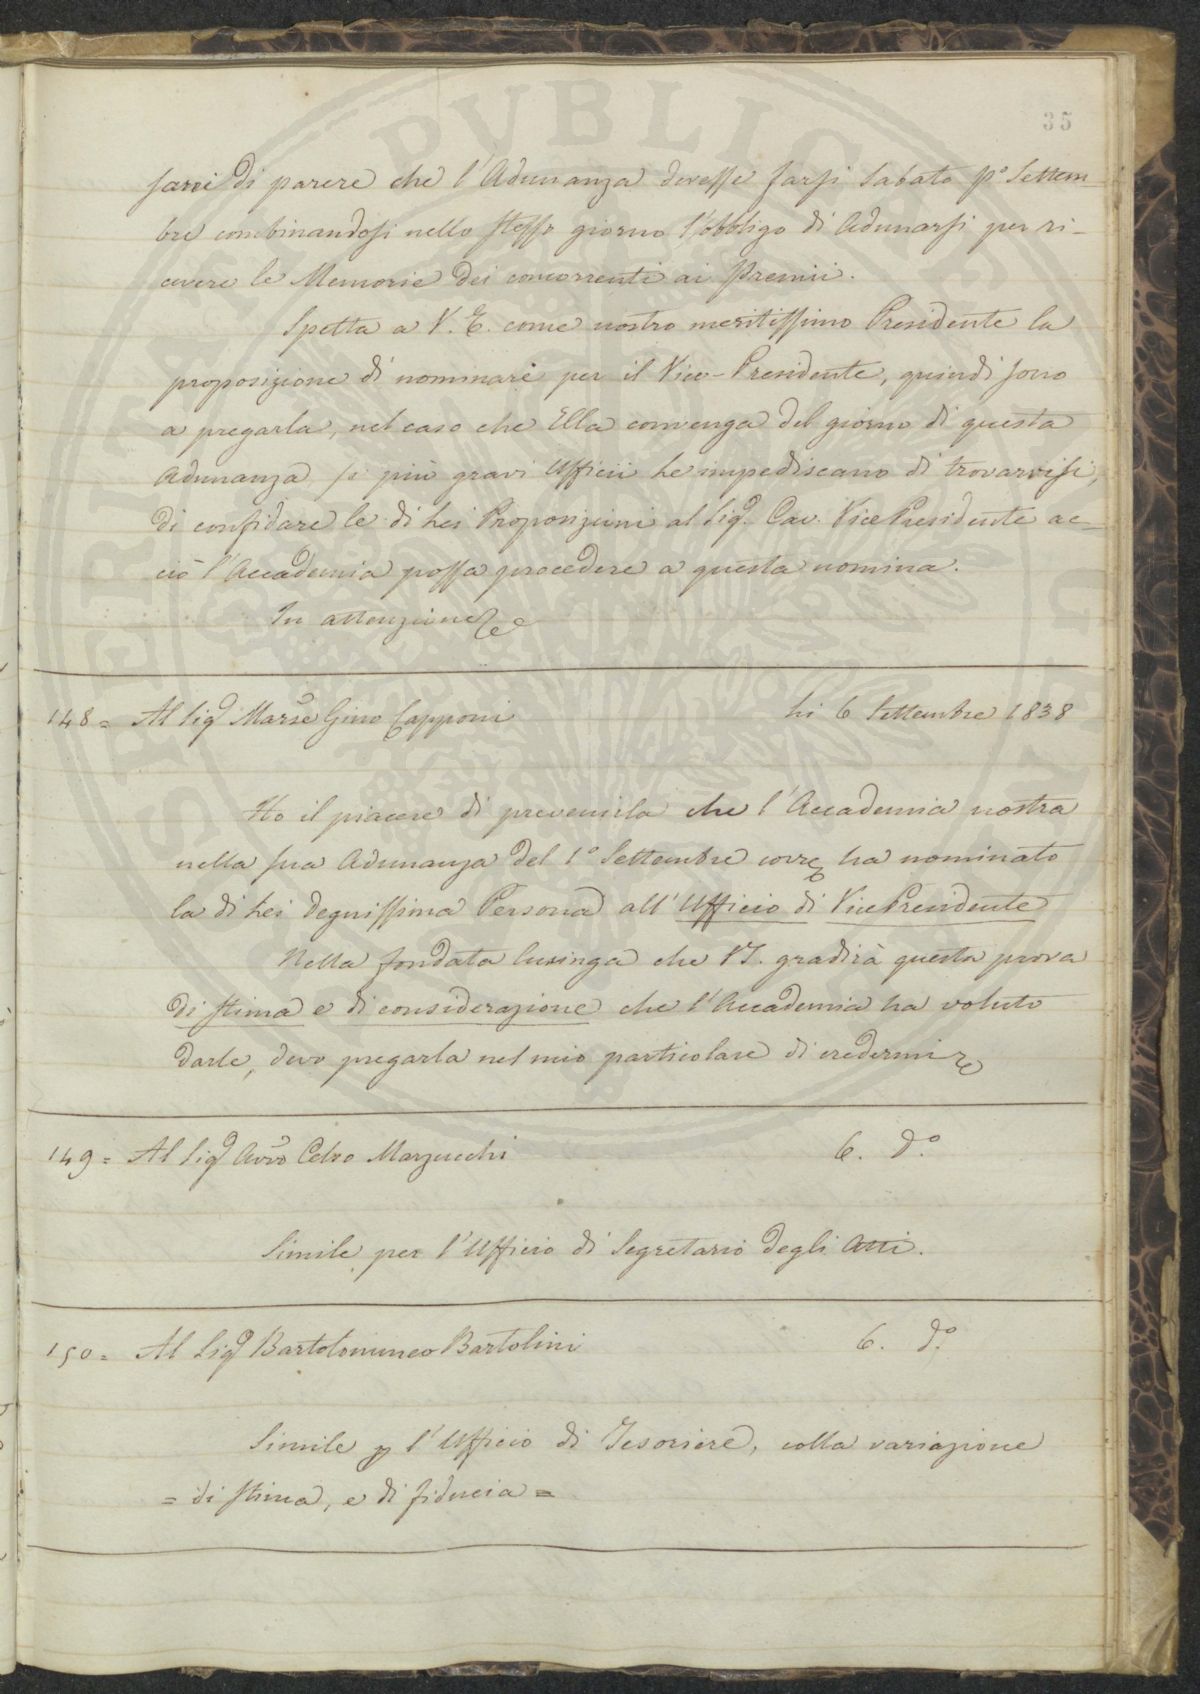 35
sarei di parere che l'Adunanza dovesse farsi Sabato p.º Settem-
bre combinandosi nello stesso giorno l'obbligo di Adunarsi per ri-
cevere le Memorie dei concorrenti ai Premii.
Spetta a V. E. come nostro meritissimo Presidente la
proposizione di nominare per il Vice-Presidente, quindi sono
a pregarla, nel caso che Ella convenga del giorno di questa
Adunanza, se più gravi Ufficii Le impediscano di trovarvisi,
di confidare le di Lei Proposizioni al Sig. Cav. Vice Presidente ac-
ciò l'Accademia possa procedere a questa nomina.
In attenzione
148 = Al Sig Marse Gino Capponi Li 6 Settembre 1838
Ho il piacere di prevenirla che l'Accademia nostra
nella sua Adunanza del 1º Settembre corre ha nominato
la di Lei degnissima Persona all'Ufficio di VicePresidente
Nella fondata lusinga che VS. gradirà questa prova
di stima e di considerazione che l'Accademia ha voluto
darle, devo pregarla nel mio particolare di credermi
149 = Al Sig Avvo Celso Marzucchi 6. dº
Simile per l'Ufficio di Segretario degli Atti.
150 = Al Sig Bartolommeo Bartolini 6. dº
Simile p l'Ufficio di Tesoriere, colla variazione
= di stima, e di fiducia =